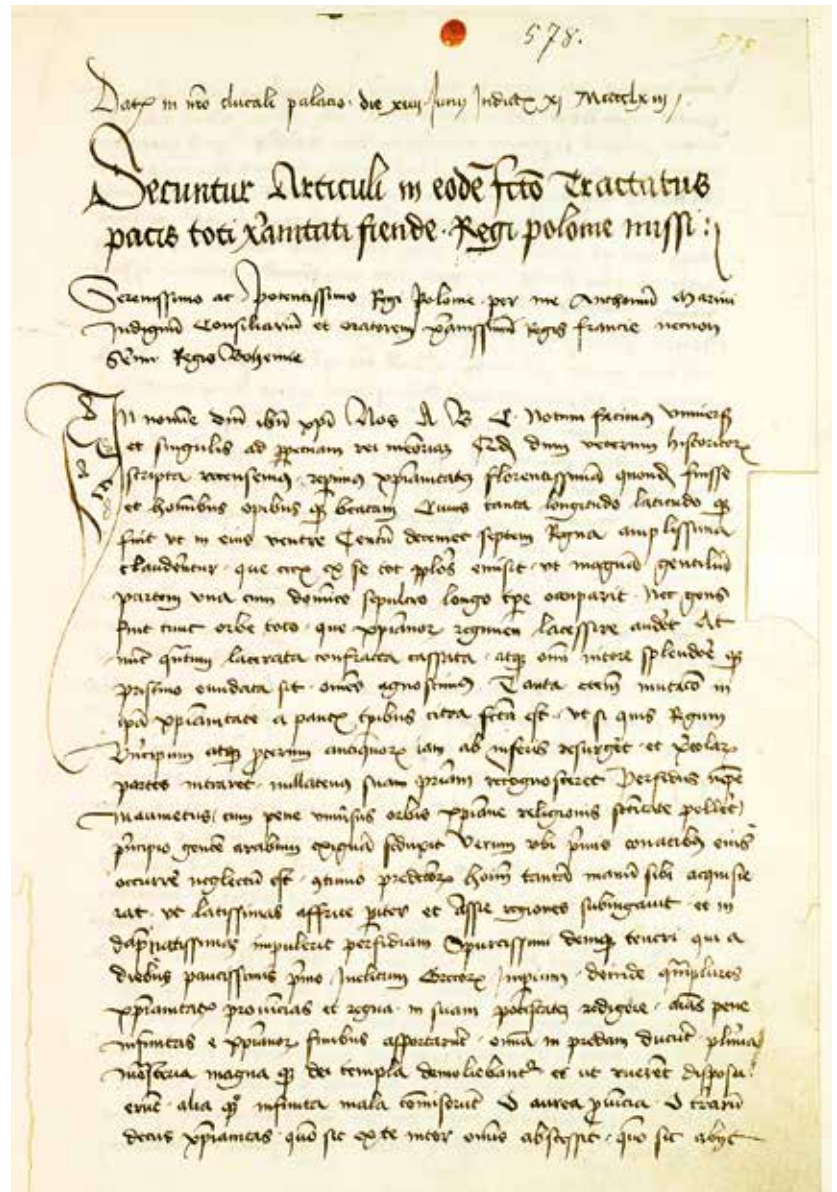 578.
575
Dat in nro ducali palacio. die xiiij Junij Indict xj Mcccclxiij
Secuntur Articuli in eode fcto Tractatus
pacis toti xranitati fiende. Regi polonie missi:
Serenissimo ac potentissimo Regi Polonie per me Anthoniu Marini
Indignu Consiliariu et oratorem xpanissimi regis francie necnon
Regis Bohemie
In nomine dni ihu xpi Nos A B C. Notum facimus universis
et singulis ad ppetuam rei memoriam dum veterum historicor
scripta recensemus, repimus xpianitate florentissima quonda fuisse
et hominibus opibus qz beatam Cuius tanta longitudo latitudo qz
fuit ut in eius ventre Centu decemet septem Regna amplissima
clauderentur. que ex se tot pplos emisit. ut magna gentiliu
partem una cum dominico sepulcro longo tpe occuparit. Nec gens
fuit tunc orbe toto. que xpianor regimen lacessire audet At
nunc lacerata confracta cassata. atqz omni nitore splendore qz
pristino sit. omnes agnoscimus. Tanta etem mutaco in
ipa xpianitate a paucis tpibus citra fcta est. ut si quis Regum
Principum atqz antiquor iam ab inferis resurget. et
partes intraret. nullatenus suam priam recognosceret Perfidus nepe
maumetus, cum pene universus orbis xpiane religionis scitate polleret
principio gente arabum exigua seduxit Verum ubi primis conatibus eius
occurre neglectu est. hoim tanta manu sibi acquisie
rat. ut latissimas affrice priter et Assie regiones subiugavit. et in
impulerit perfidiam Spurcissimi demu teucri qui a
diebus paucissimis primo Inclitum Grecor Imperium. deinde qmplures
xpianitatis provincias et regna. in suam potestate redigere. aias pene
infinitas e xpianor finibus asportarut. omnia in predam ducut plima
monasteria magna qz dei templa demoliebant et ut ruerent disposu
erut. alia qz infinita mala comiserut O aurea provincia O terraru
decus xpianitas. quo sic ex te nitor omnis abscessit. quo sic abijt